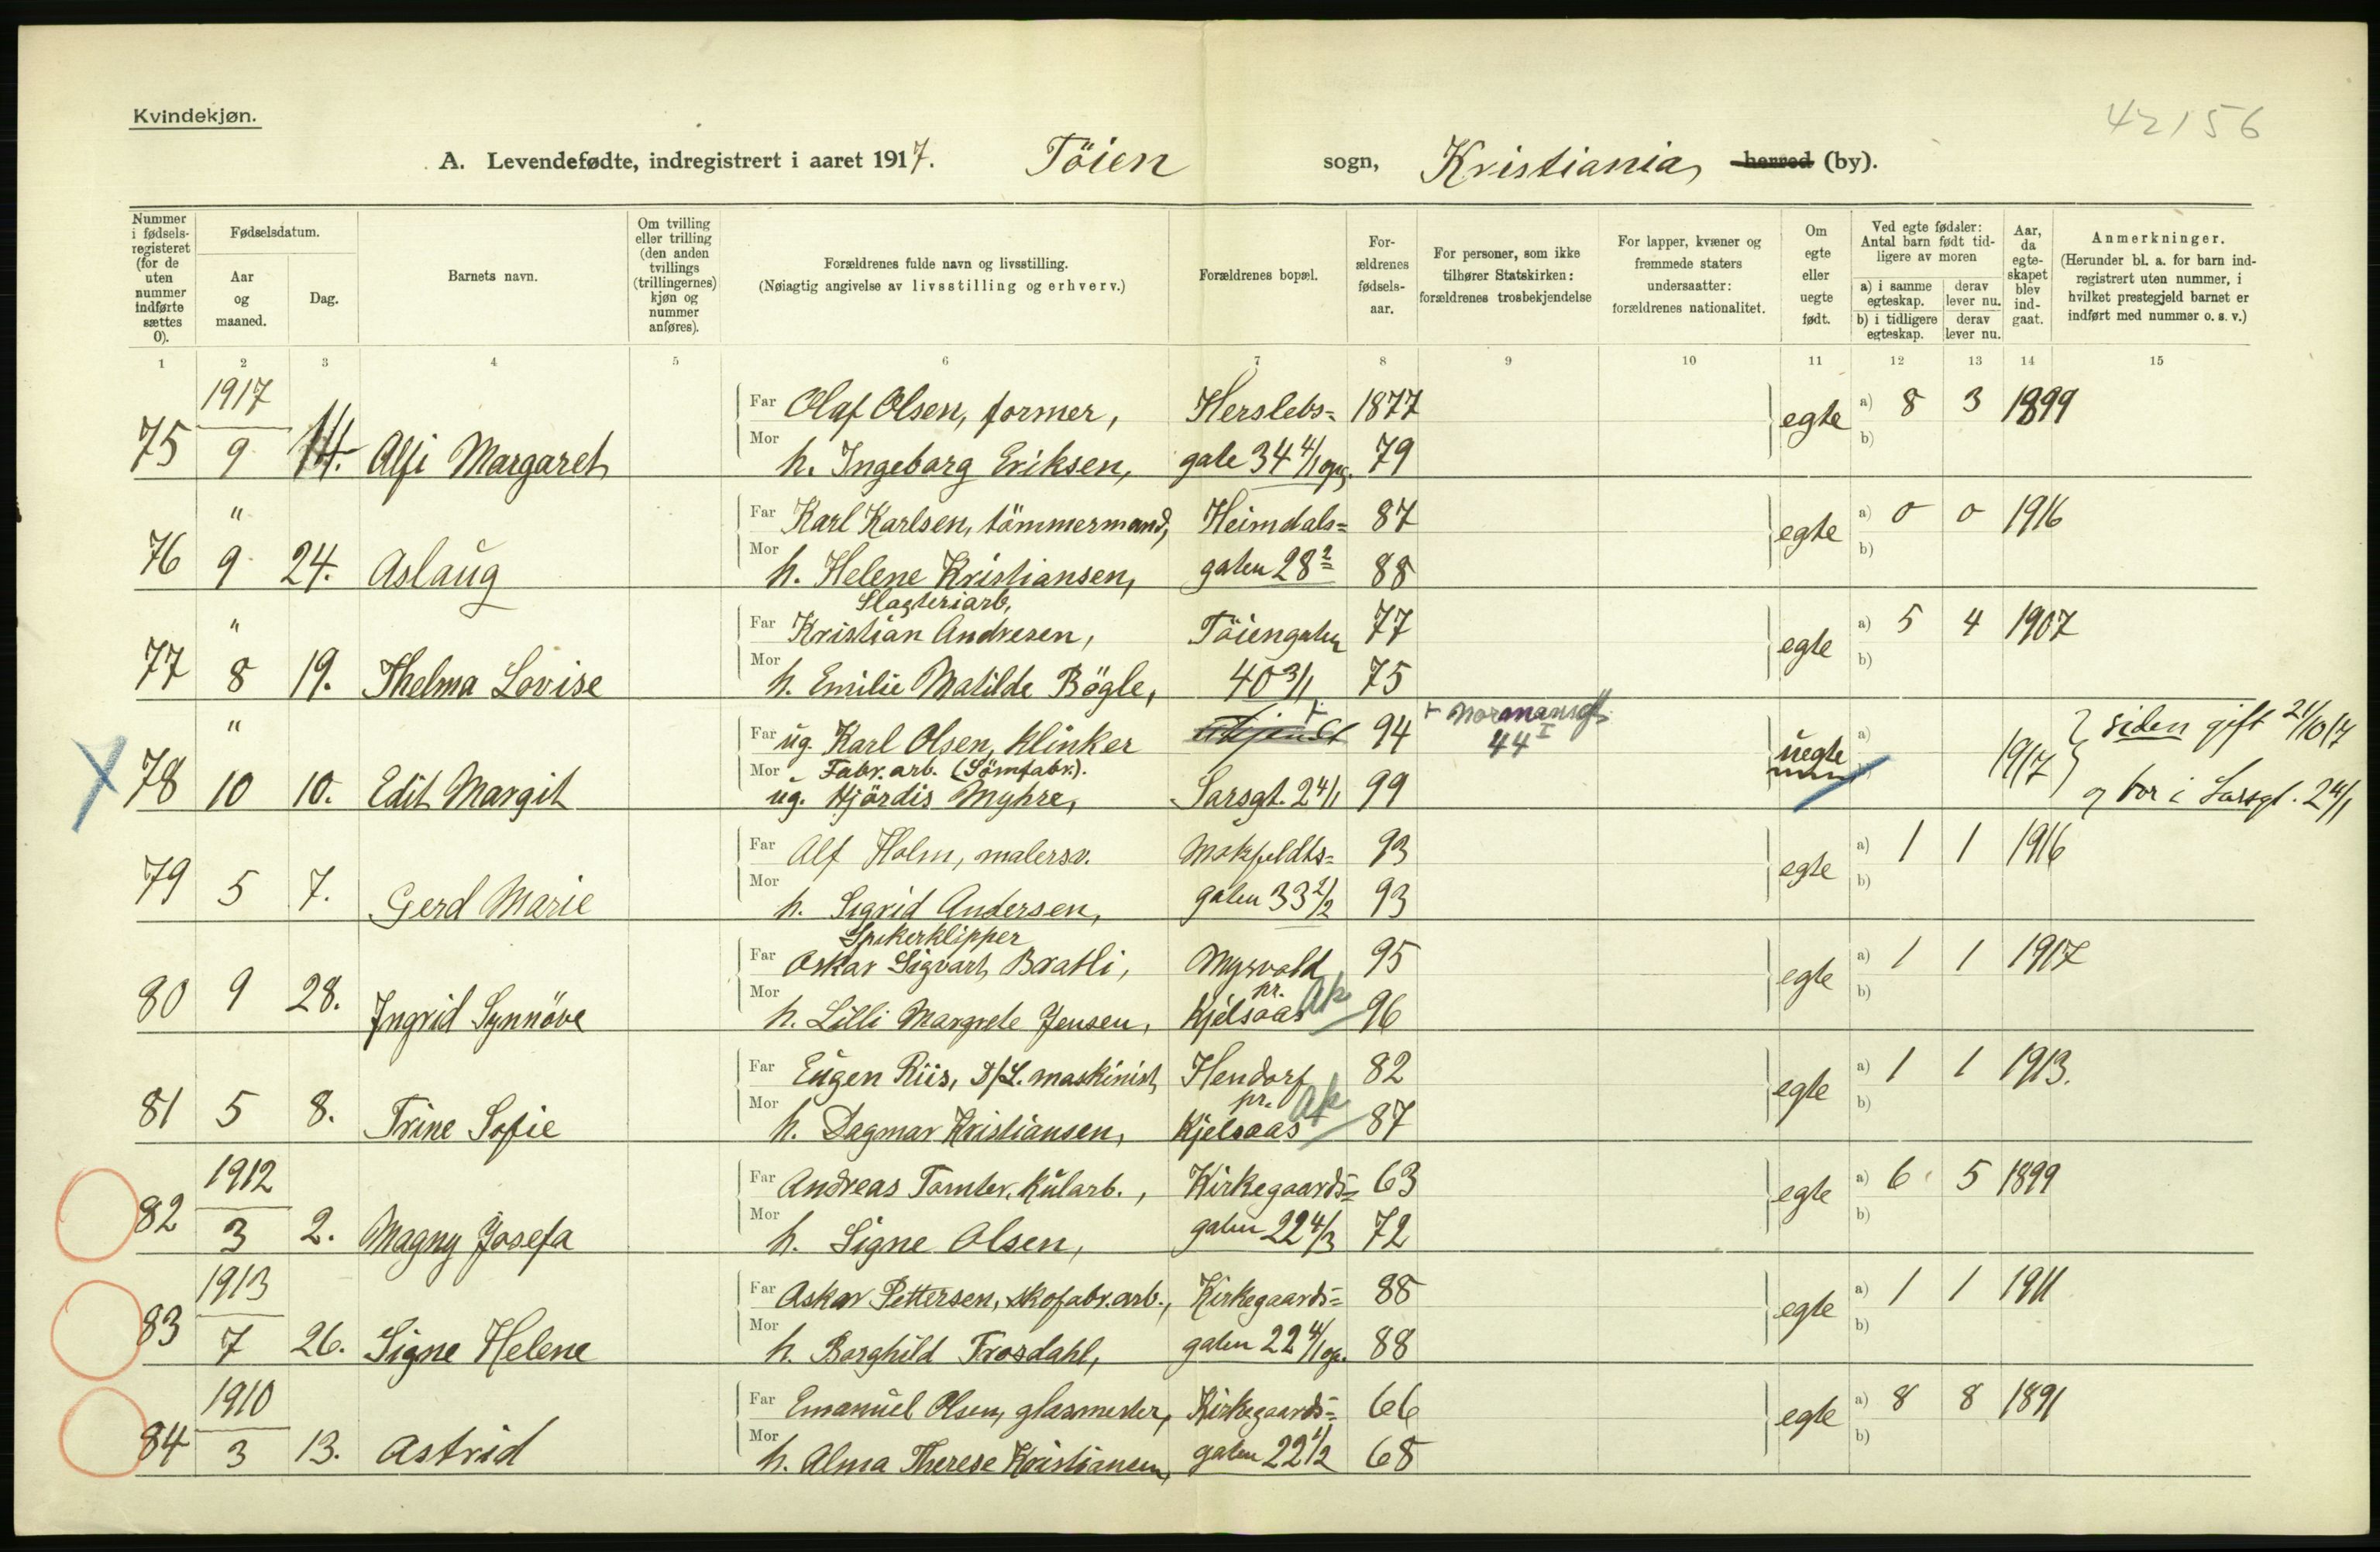 Kvindekjøn.
42156
A. Levendefødte, indregistrert i aaret 1917. Töien sogn, Kristiania, herred (by).
Nummer i fødsels-registeret (for de uten nummer indførte sættes 0).
Fødselsdatum.
Aar og maaned.
Dag.
Barnets navn.
Om tvilling eller trilling (den anden tvillings (trillingernes) kjøn og nummer anføres).
Forældrenes fulde navn og livsstilling.
(Nøiagtig angivelse av livsstilling og erhverv.)
Forældrenes bopæl.
For-ældrenes fødsels-aar.
For personer, som ikke tilhører Statskirken: forældrenes trosbekjendelse
For lapper, kvæner og fremmede staters undersaatter: forældrenes nationalitet.
Om egte eller uegte født.
Ved egte fødsler: Antal barn født tid-ligere av moren
a) i samme egteskap. derav lever nu.
b) i tidligere egteskap. derav lever nu.
Aar, da egte-skapet blev ind-gaat.
Anmerkninger.
(Herunder bl. a. for barn ind-registrert uten nummer, i hvilket prestegjeld barnet er indført med nummer o. s. v.)
1 2 3 4 5 6 7 8 9 10 11 12 13 14 15
1917 Far Olaf Olsen, former, Herslebs= 1877 egte a) 8 3 1899
75 9 14. Alfi Margaret Mor h. Ingeborg Eriksen, gate 34 4/1 opg. 79 b)
" Far Karl Karlsen, tömmermand, Heimdals= 87 egte a) 0 0 1916
76 9 24. Aslaug Mor h. Helene Kristiansen, gaten 28 2 88 b)
Slagteriarb,
" Far Kristian Andresen, Töiengaten 77 egte a) 5 4 1907
77 8 19. Thelma Lovise Mor h. Emilie Matilde Bögle, 40 3/1 75 b)
" Far ug. Karl Olsen, klinker 94 + Normannsgt. 44 I uegte a) 1917 siden gift 21/10 17
Fabr. arb. (Sömfabr.).
78 10 10. Edit Margit Mor ug. Hjördis Myhre, Sarsgt. 24/1 99 og bor i Sarsgt. 24/1
Far Alf Holm, malersv. Motzfeldts= 93 egte a) 1 1 1916
79 5 7. Gerd Marie Mor h. Sigrid Andersen, gaten 33 2/2 93 b)
Spikerklipper
Far Oskar Sigvart Bratli, Mysvold 95 egte a) 1 1 1917
80 9 28. Ingrid Synnöve Mor h. Lilli Margrete Jensen, pr. Kjelsaas Ak 96 b)
Far Eugen Riis, D/S. maskinist, Hendorf 82 egte a) 1 1 1913.
81 5 8. Trine Sofie Mor h. Dagmar Kristiansen, pr. Kjelsaas Ak 87 b)
1912 Far Andreas Tomter, kularb., Kirkegaards= 63 egte a) 6 5 1899
82 3 2. Magny Josefa Mor h. Signe Olsen, gaten 22 4/3 72 b)
1913 Far Oskar Pettersen, skofabr.arb., Kirkegaards= 88 egte a) 1 1 1911
83 7 26. Signe Helene Mor h. Borghild Frosdahl, gaten 22 4/1 op. 88 b)
1910 Far Emanuel Olsen, glasmester, Kirkegaards= 66 egte a) 8 8 1891
84 3 13. Astrid Mor h. Alma Therese Kristiansen, gaten 22 1/2 68 b)